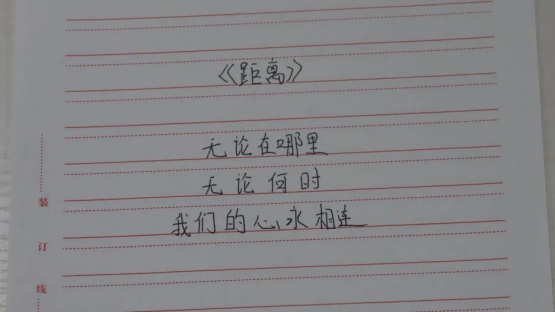 《距离》
无论在哪里
无论何时
我们的心永相连
装
订
线